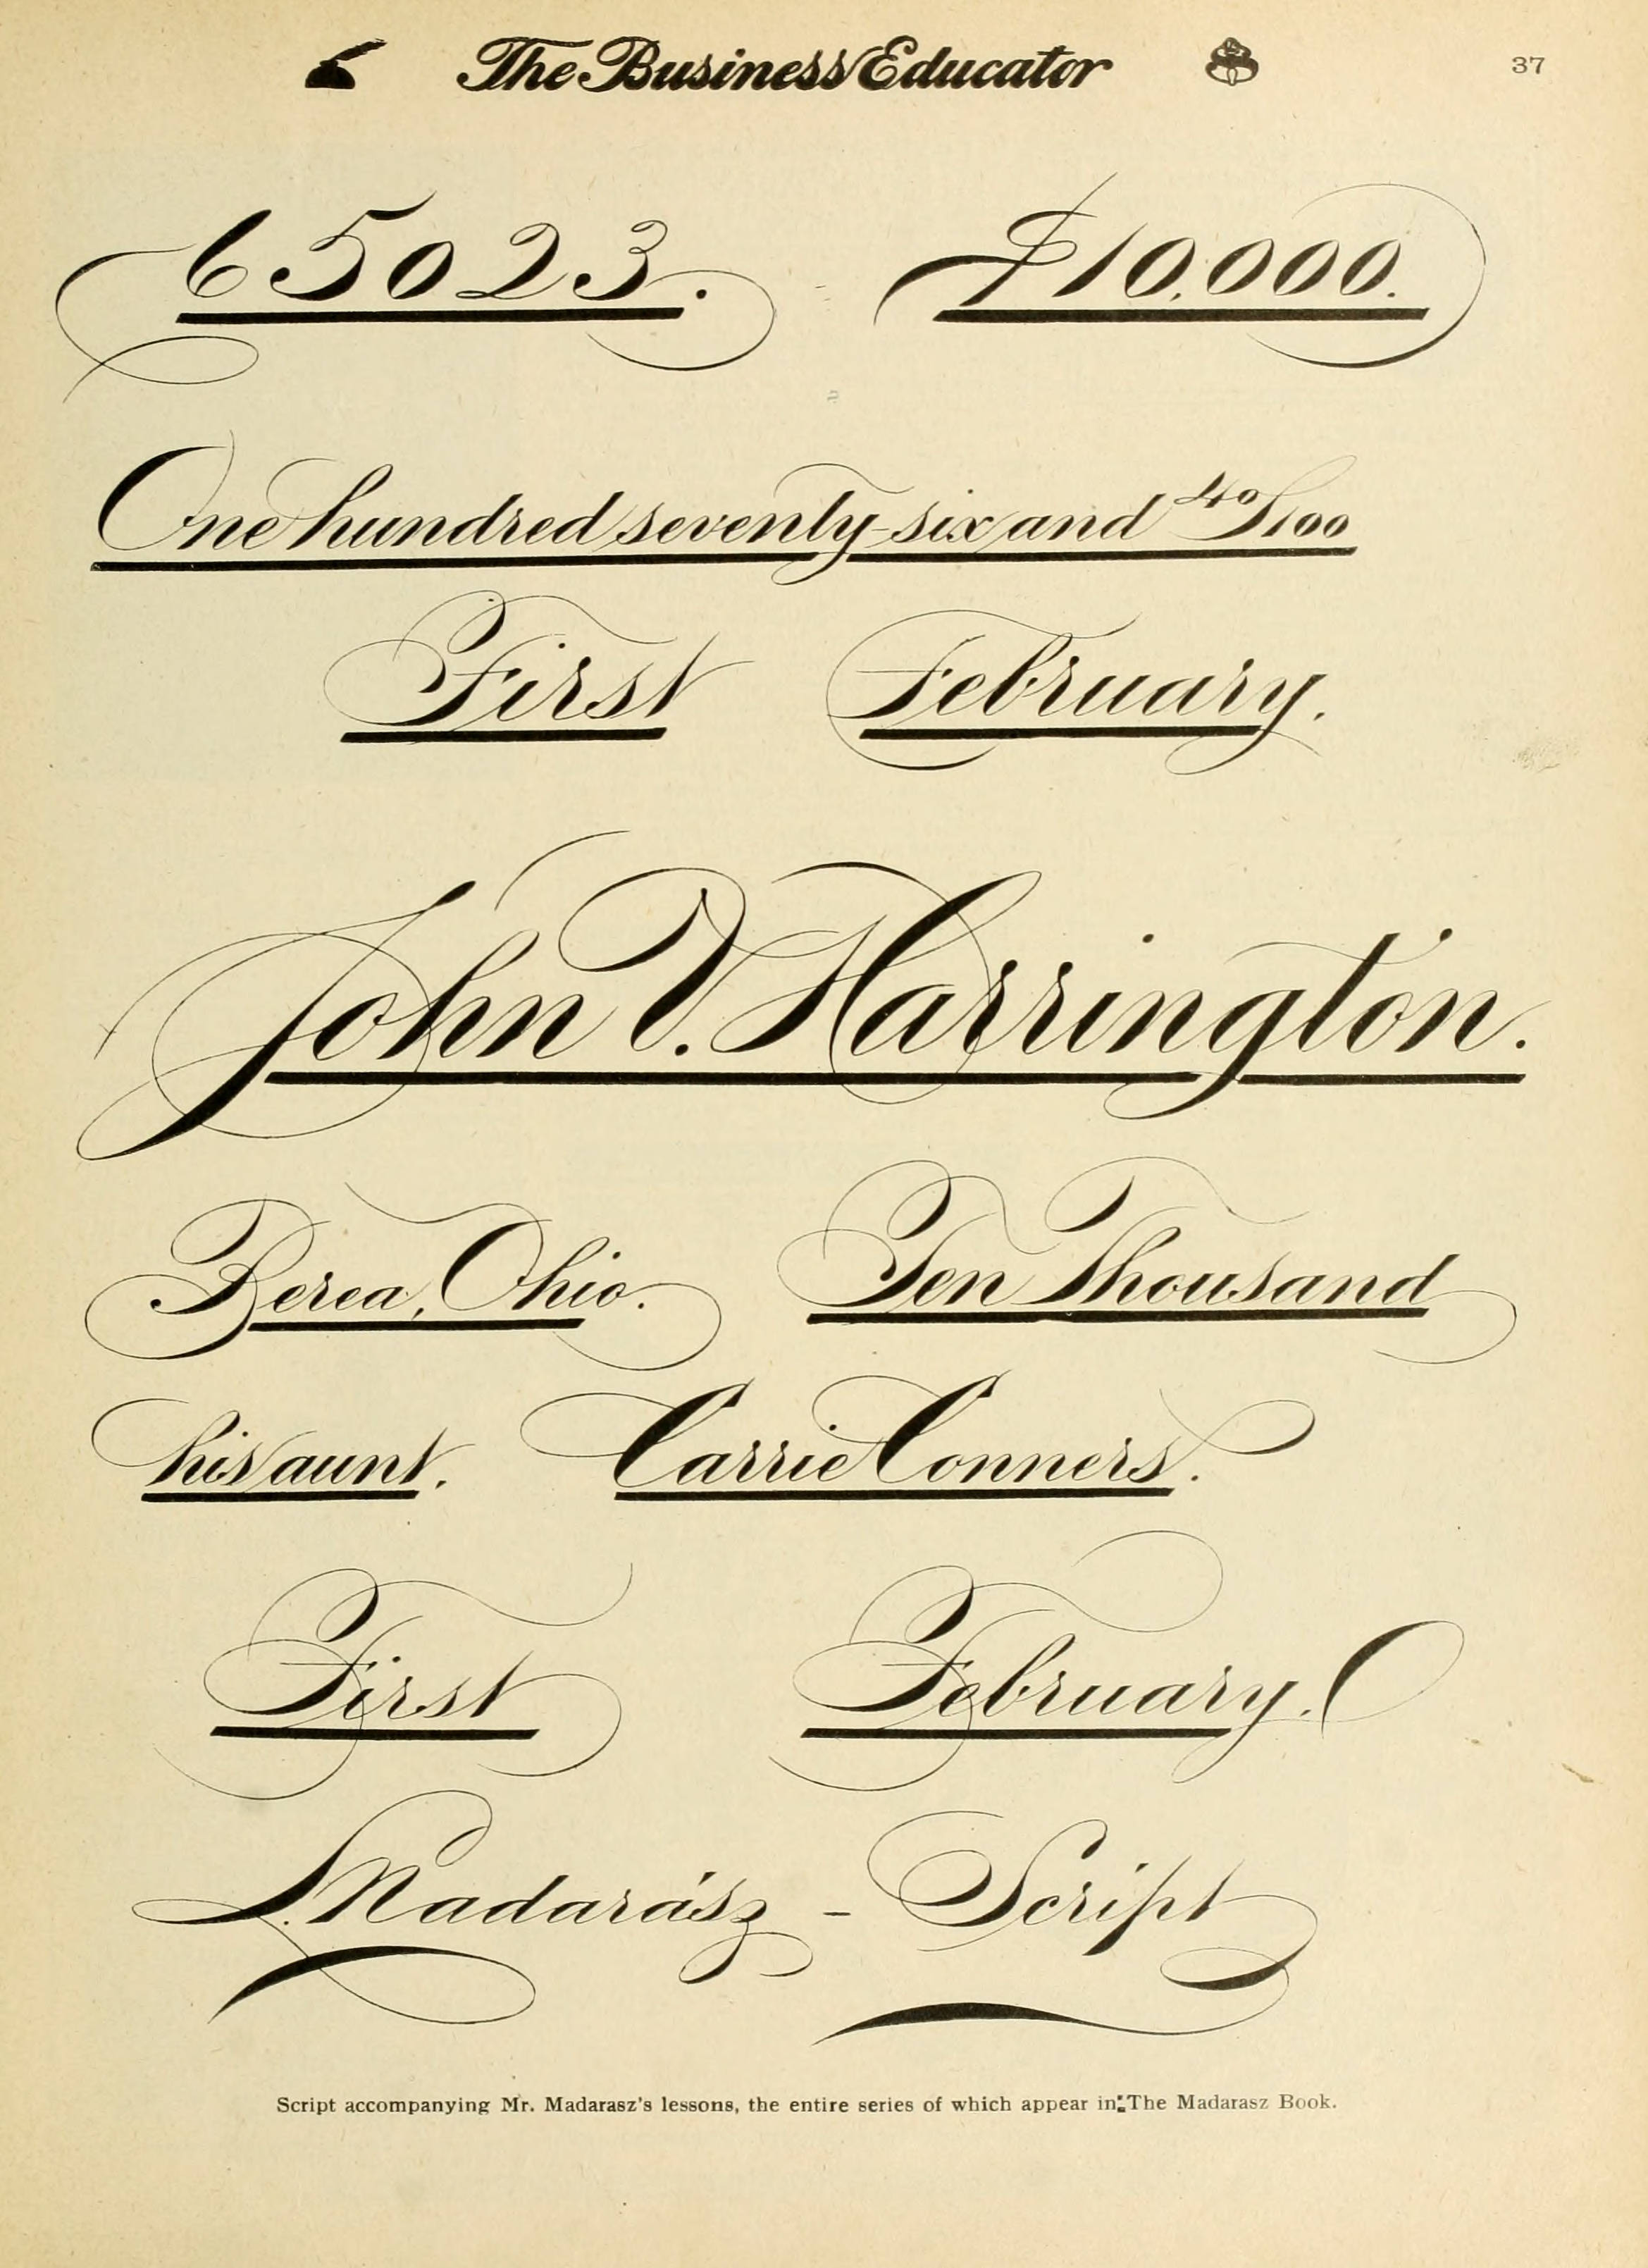 The Business Educator 37
65023. $10,000.
One hundred seventy-six and 40/100
First February.
John D. Harrington.
Berea, Ohio. Ten Thousand
his aunt. Carrie Conners.
First February.
L. Madarász - Script
Script accompanying Mr. Madarasz's lessons, the entire series of which appear in The Madarasz Book.